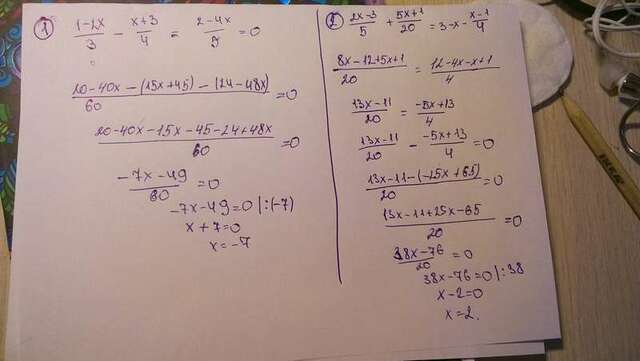 1
(1-2x)/3 - (x+3)/4 = (2-4x)/5 = 0
(20-40x-(15x+45)-(24-48x))/60 = 0
(20-40x-15x-45-24+48x)/60 = 0
(-7x-49)/60 = 0
-7x-49=0 |:(-7)
x+7=0
x=-7
2
(2x-3)/5 + (5x+1)/20 = 3-x-(x-1)/4
(8x-12+5x+1)/20 = (12-4x-x+1)/4
(13x-11)/20 = (-5x+13)/4
(13x-11)/20 - (-5x+13)/4 = 0
(13x-11-(-25x+65))/20 = 0
(13x-11+25x-65)/20 = 0
(38x-76)/20 = 0
38x-76=0 |:38
x-2=0
x=2.